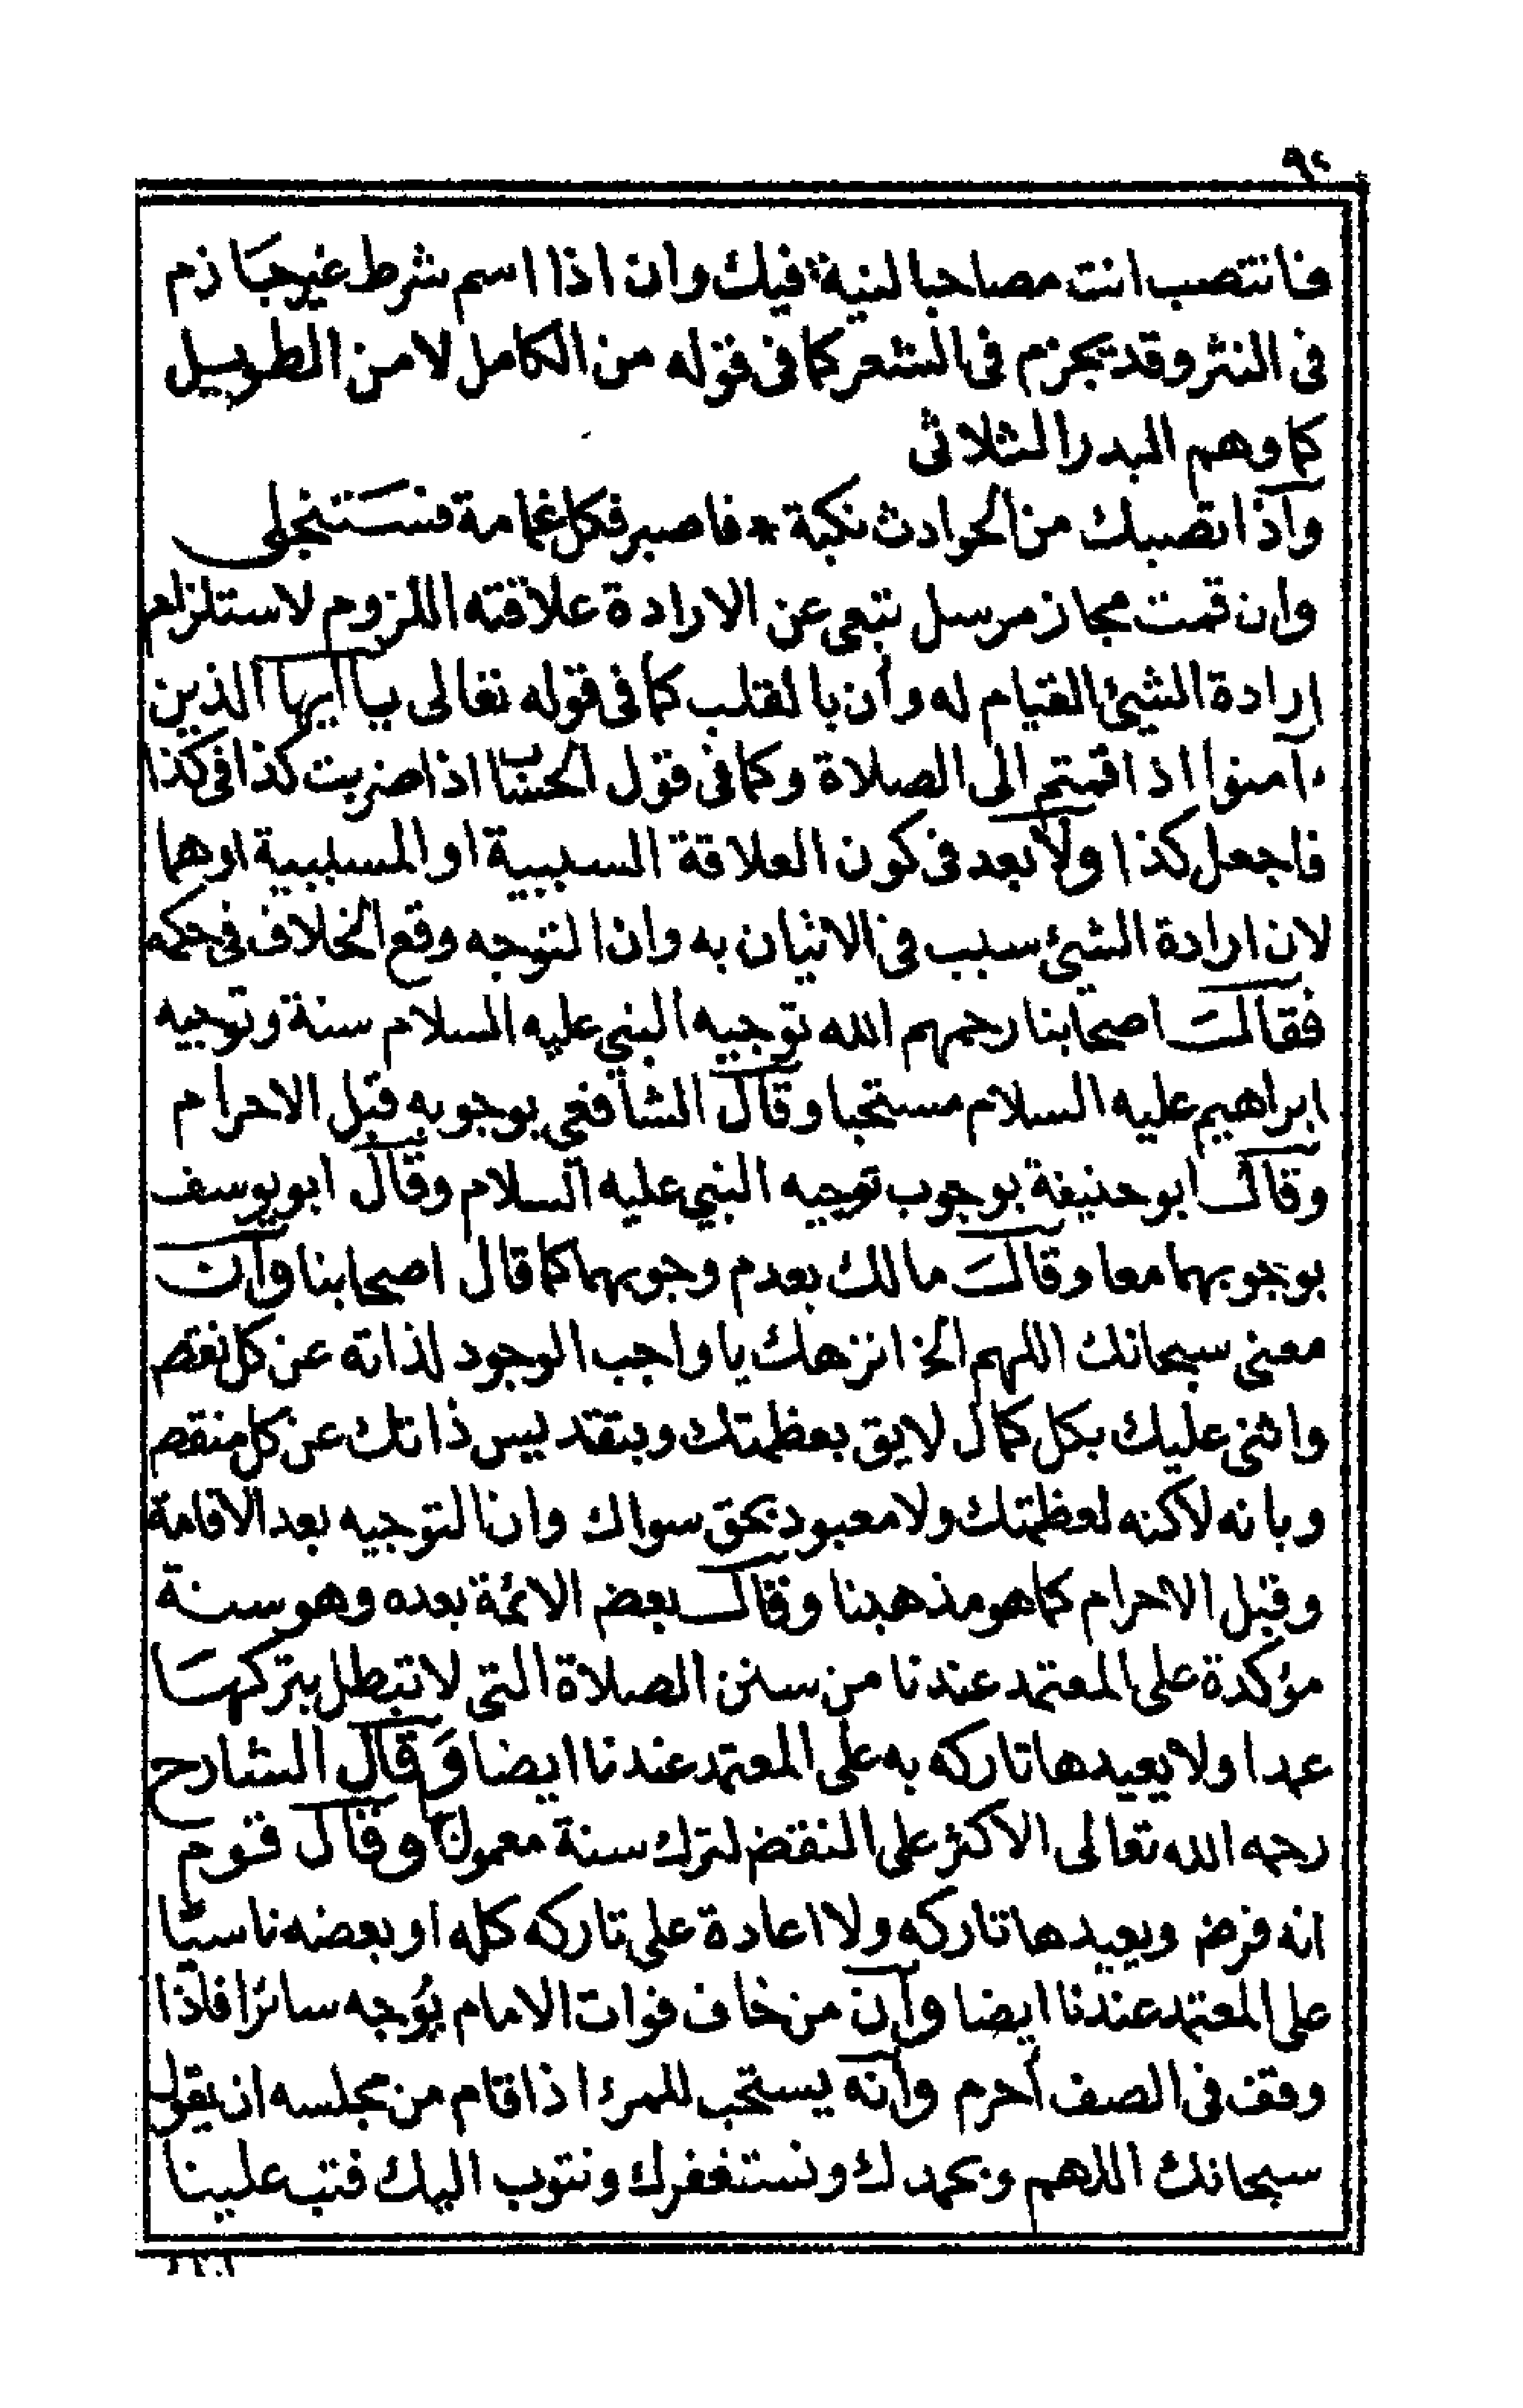 ٩٤
فانتصب انت مصاحبا لنية فيك وان اذا اسم شرط غير جازم
فى النثر وقد يجزم فى الشعر كما فى قوله من الكامل لا من الطويل
كما وهم البدر الثلاثى
واذا تصبك من الحوادث نكبة * فاصبر فكل غمامة فستنجلى
وان قمت مجاز مرسل تبعى عن الارادة علاقته اللزوم لاستلزام
ارادة الشيئ القيام له وان بالقلب كما فى قوله تعالى يا ايها الذين
ءامنوا اذا قمتم الى الصلاة وكما فى قول الحساب اذا ضربت كذا فى كذا
فاجعل كذا ولا بعد فى كون العلاقة السببية او المسببية او هما
لان ارادة الشيئ سبب فى الاتيان به وان التوجه وقع الخلاف فى حكمه
فقالت اصحابنا رحمهم الله توجيه النبي عليه السلام سنة وتوجيه
ابراهيم عليه السلام مستحبا وقال الشافعي بوجوبه قبل الاحرام
وقال ابو حنيفة بوجوب توجيه النبي عليه السلام وقال ابو يوسف
بوجوبهما معا وقال مالك بعدم وجوبهما كما قال اصحابنا وان
معنى سبحانك اللهم الخ انزهك يا واجب الوجود لذاته عن كل نقص
واثنى عليك بكل كمال لايق بعظمتك وبتقديس ذاتك عن كل منقص
وبانه لا كنه لعظمتك ولا معبود بحق سواك وان التوجيه بعد الاقامة
وقبل الاحرام كما هو مذهبنا وقال بعض الائمة بعده وهو سنة
مؤكدة على المعتمد عندنا من سنن الصلاة التى لا تبطل بتركها
عمدا ولا يعيدها تاركه به على المعتمد عندنا ايضا وقال الشارح
رحمه الله تعالى الاكثر على النقض لترك سنة معمول وقال قوم
انه فرض ويعيدها تاركه ولا اعادة على تاركه كله او بعضه ناسيا
على المعتمد عندنا ايضا وان من خاف فوات الامام يُوجه سائرا فاذا
وقف فى الصف احرم وانه يستحب للمرء اذا قام من مجلسه ان يقول
سبحانك اللهم وبحمدك ونستغفرك ونتوب اليك فتب علينا